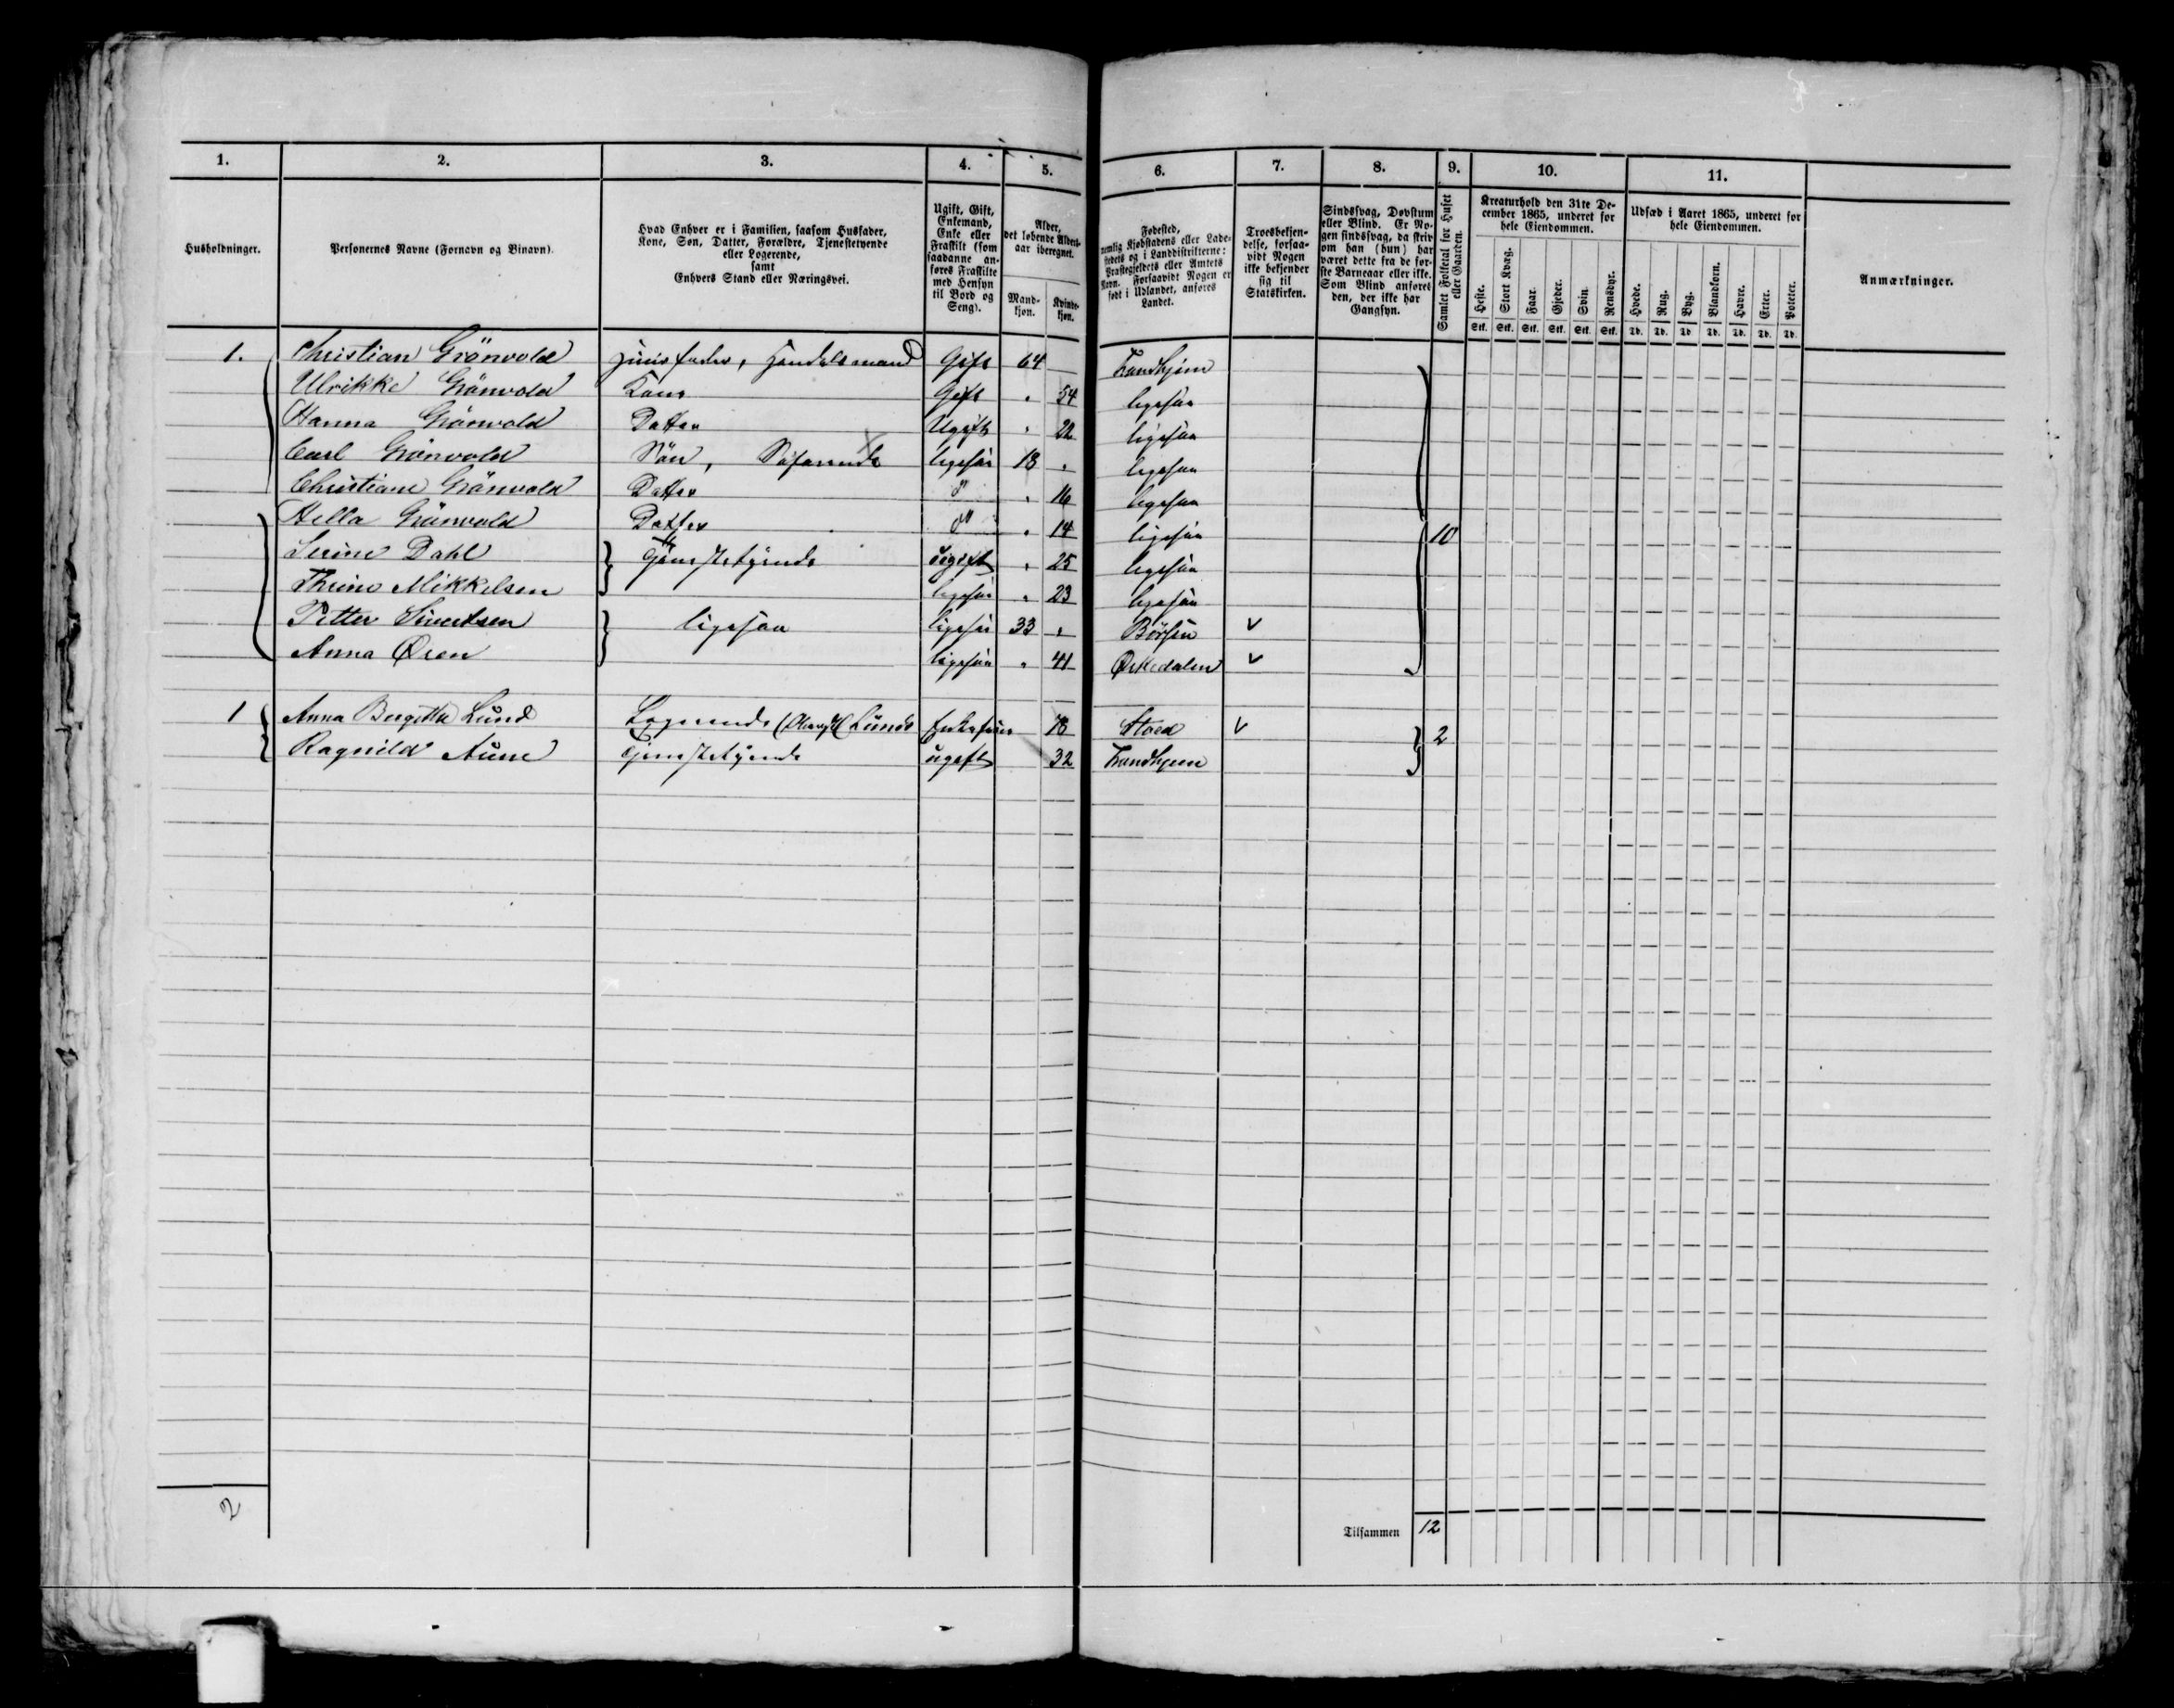 1. 2. 3. 4. 5. 6. 7. 8. 9. 10. 11.
Husholdninger.
Personernes Navne (Fornavn og Binavn).
Hvad Enhver er i Familien, saasom Husfader,
Kone, Søn, Datter, Forældre, Tjenestetyende
eller Logerende,
samt
Enhvers Stand eller Næringsvei.
Ugift, Gift,
Enkemand,
Enke eller
Fraskilt (som
saadanne an-
føres Fraskilte
med Hensyn
til Bord og
Seng).
Alder,
det løbende Alders-
aar iberegnet.
Mand-
kjøn.
Kvinde-
kjøn.
Fødested,
nemlig Kjøbstadens eller Lade-
stedets og i Landdistrikterne:
Præstegjeldets eller Amtets
Navn. Forsaavidt Nogen er
født i Udlandet, anføres
Landet.
Troesbekjen-
delse, forsaa-
vidt Nogen
ikke bekjender
sig til
Statskirken.
Sindssvag, Døvstum
eller Blind. Er No-
gen sindssvag, da skriv
om han (hun) har
været dette fra de før-
ste Barneaar eller ikke.
Som Blind anføres
den, der ikke har
Gangsyn.
Samlet Folketal for Huset
eller Gaarden.
Kreaturhold den 31te De-
cember 1865, underet for
hele Eiendommen.
Heste. Stort Kvæg. Faar. Gjeder. Svin. Rensdyr.
Stk. Stk. Stk. Stk. Stk. Stk.
Udsæd i Aaret 1865, underet for
hele Eiendommen.
Hvede. Rug. Byg. Blandkorn. Havre. Erter. Poteter.
Td. Td. Td. Td. Td. Td. Td.
Anmærkninger.
1. Christian Grönvold Huusfader, Handelsmand Gift 64 Trondhjem
Ulrikke Grönvold Kone Gift " 54 ligesaa
Hanna Grönvold Datter Ugift " 22 ligesaa
Carl Grönvold Sön, Söfarende ligesaa 18 " ligesaa
Christiane Grönvold Datter do " 16 ligesaa
Hella Grönvold Datter do " 14 ligesaa 10
Serine Dahl Tjenestetyende ugift " 25 ligesaa
Thrine Mikkelsen ligesaa " 23 ligesaa
Petter Sivertsen ligesaa ligesaa 33 " Börsen v
Anna Øren ligesaa " 41 Ørkedalen v
1 Anna Bergitta Lund Logerende Lunds Enkefrue 78 Stoed v
Ragnild Aune Tjenestetyende ugift 32 Trondhjem 2
2
Tilsammen 12